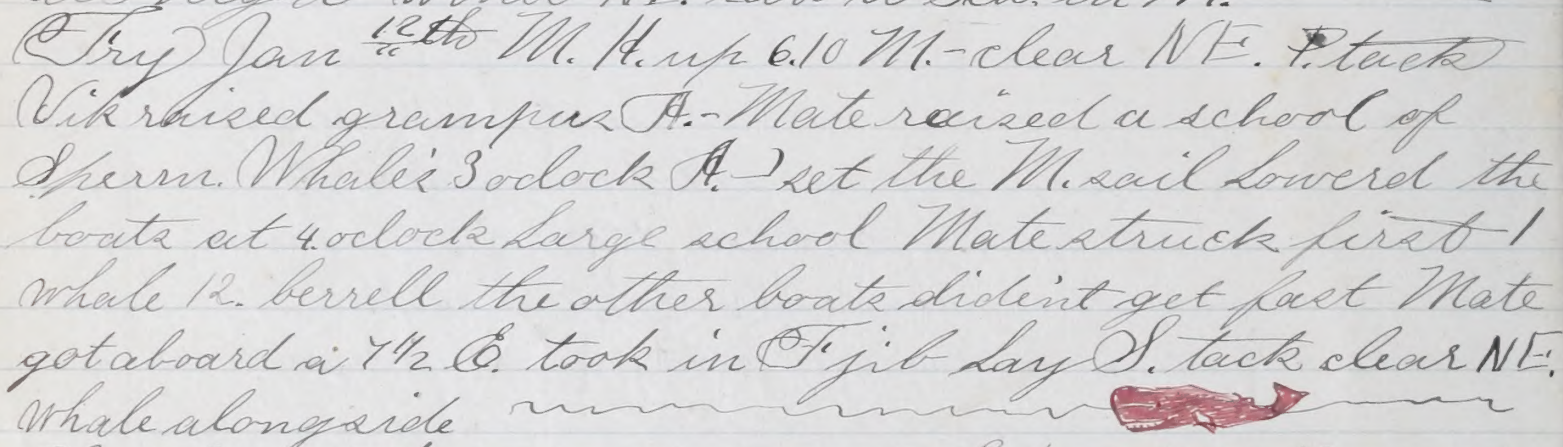 Fry Jan 12th M. H. up 6.10 M.- clear NE. P. tack
Vik raised grampus A.- Mate raised a school of
Sperm. Whale's 3 oclock A.- set the M. sail Lowerd the
boats at 4. oclock Large school Mate struck first 1
whale 12. berrell the other boats dident get fast Mate
got aboard a 7 1/2 E. took in F jib Lay S. tack clear NE.
whale alongside